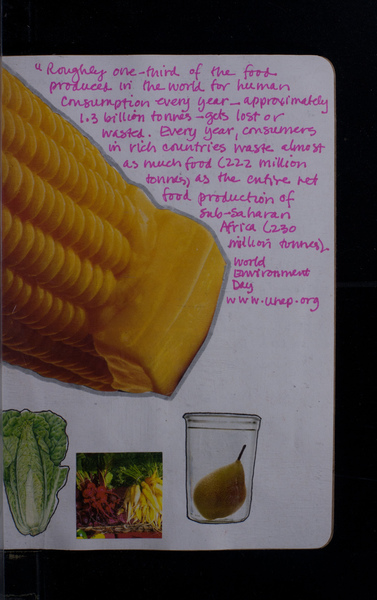 "Roughly one-third of the food
produced in the world for human
consumption every year - approximately
1.3 billion tonnes - gets lost or
wasted. Every year, consumers
in rich countries waste almost
as much food (222 million
tonnes) as the entire net
food production of
sub-Saharan
Africa (230
million tonnes).
World
Environment
Day
www.unep.org